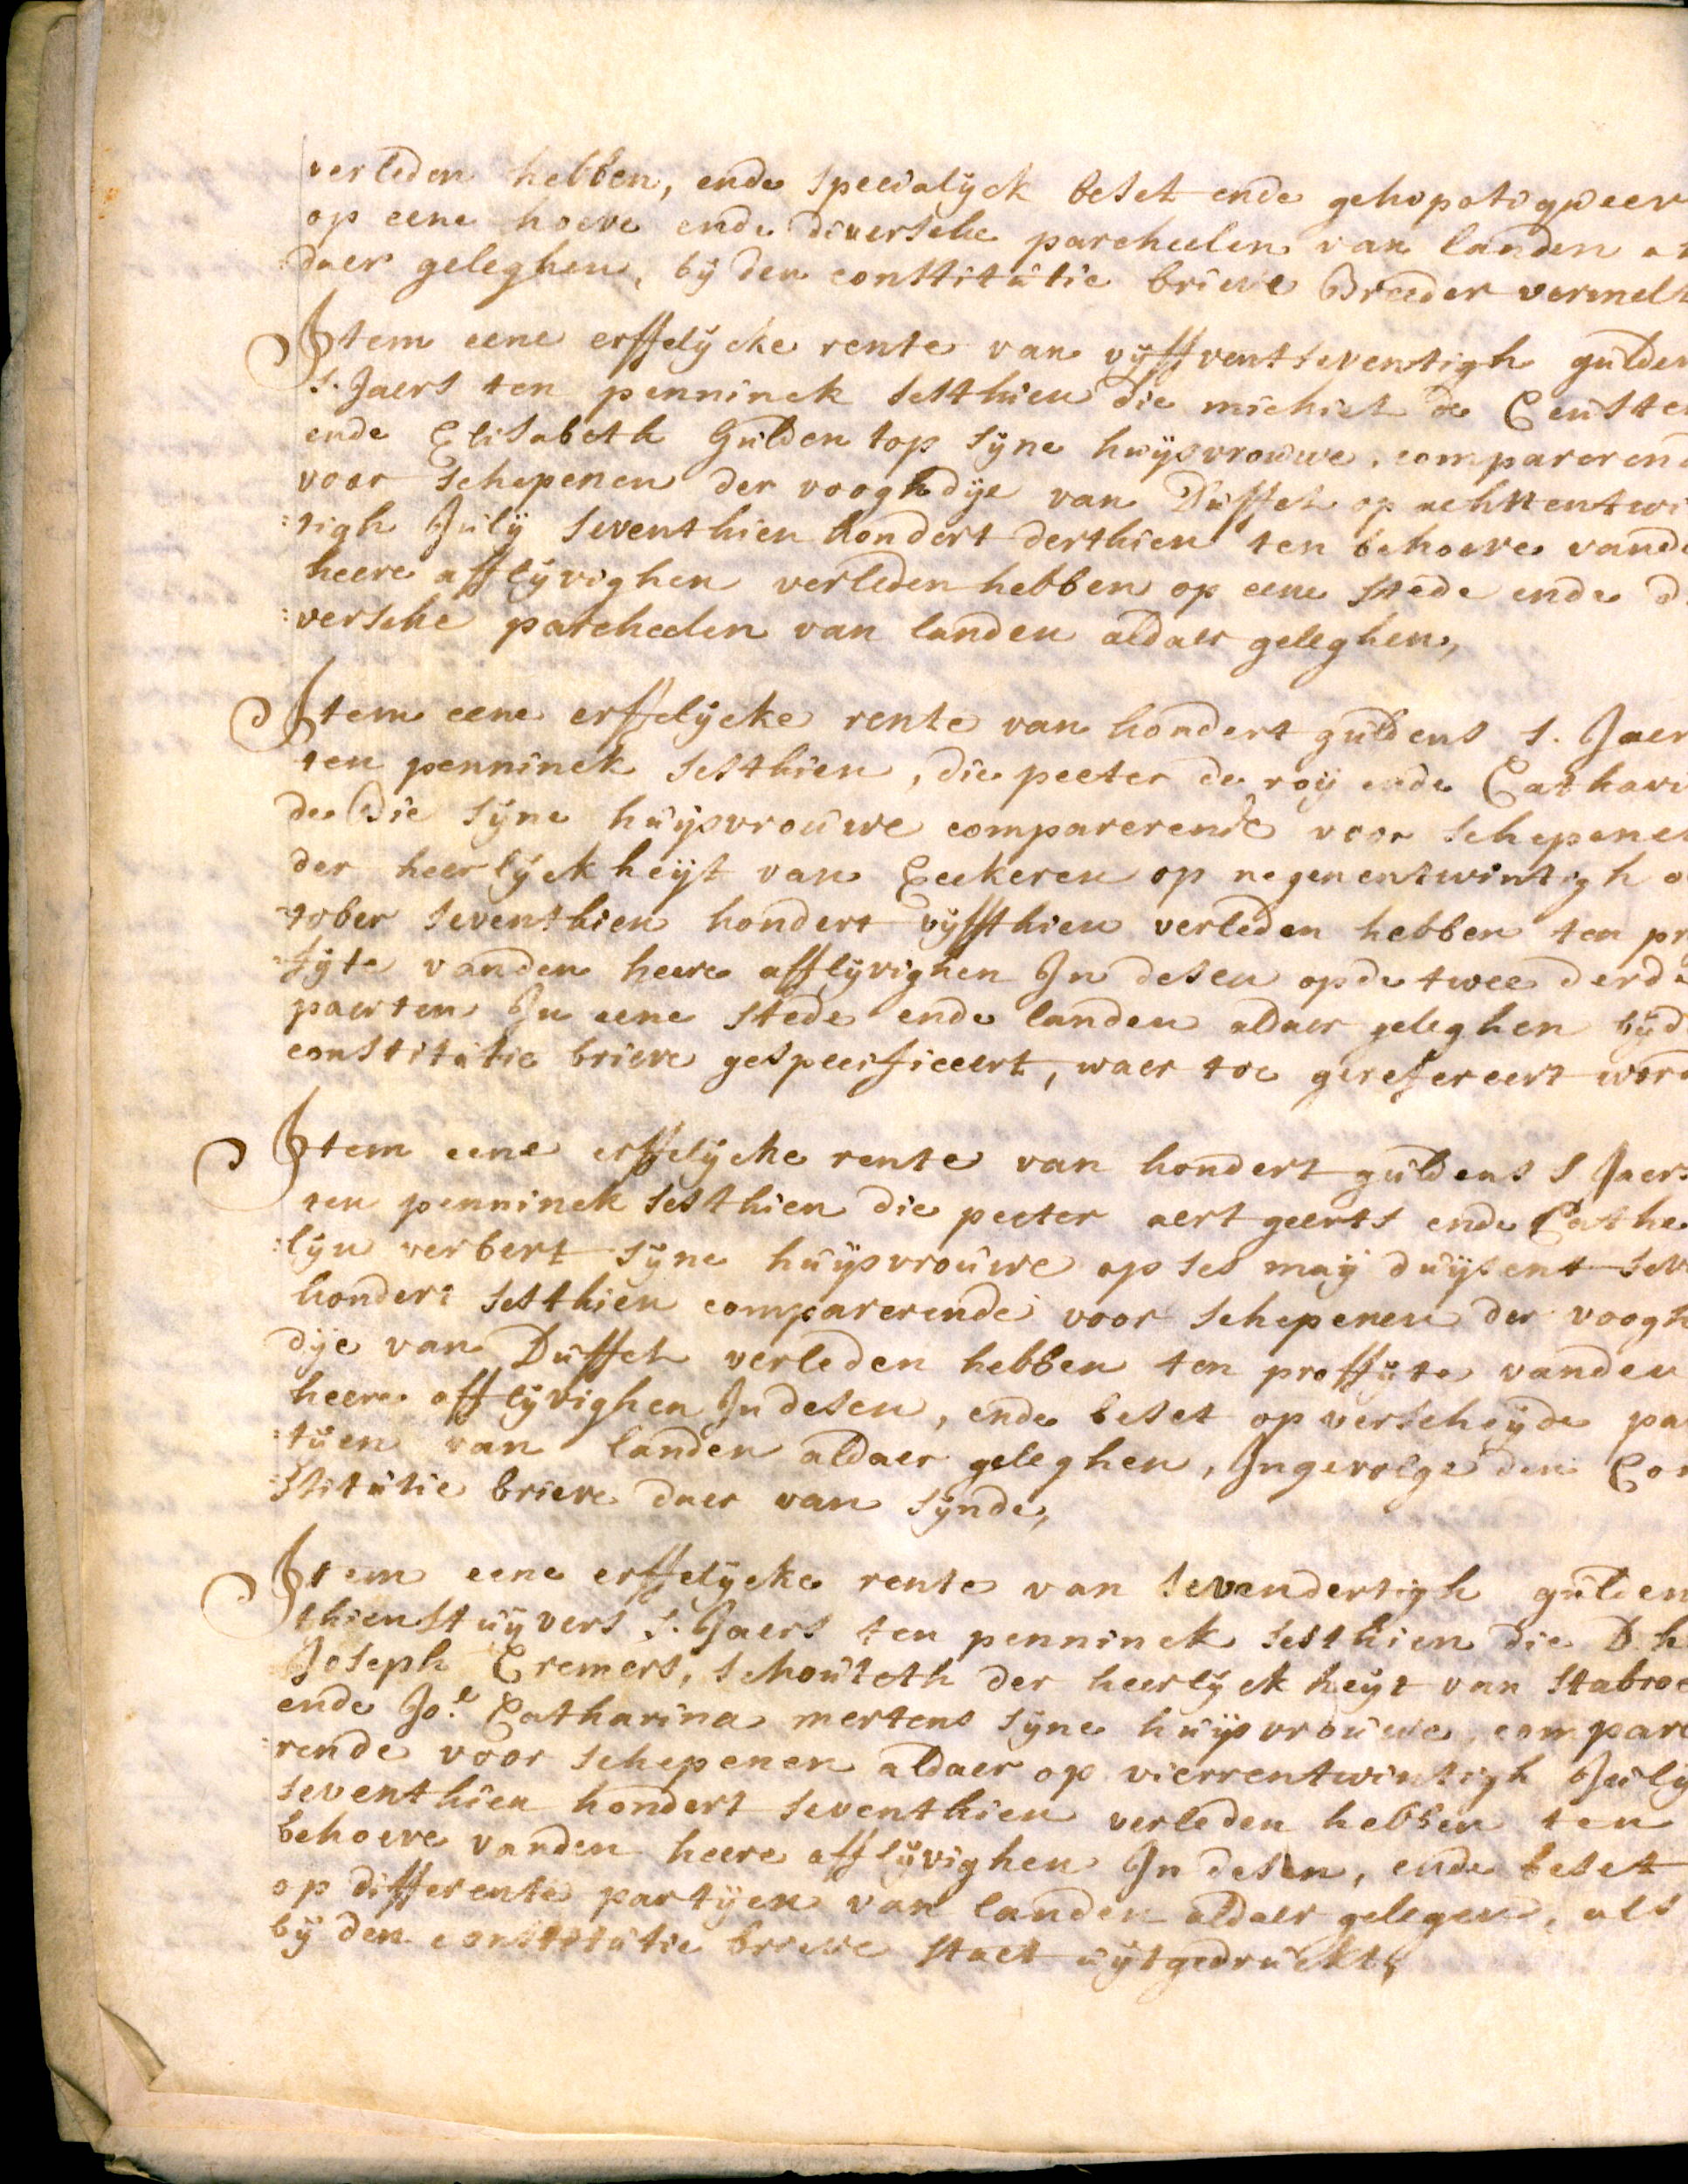 verleden hebben, ende specialyck beset ende gehipotiqueer
op eene hoeve ende diversche parcheelen van landen al
:daer geleghen, bÿ den constitutie brieve Breeder vermelt
Item eene erffelÿcke rente van vÿffventseventigh gulden
s. Jaers ten penninck sesthien die michiel de Ceuster
ende Elisabeth Guldentop sÿne huÿsvrouwe, comparerend
voor schepenen der vooghdÿe van Duffel op achttentwi
:tigh Julÿ seventhien hondert derthien ten behoeve vande
heere afflÿvighen verleden hebben op eene stede ende di
:versche parcheelen van landen aldaer geleghen,
Item eene erffelÿcke rente van hondert guldens s. Jaer
ten penninck sesthien, die peeter de roÿ ende Cathari
de Bie sÿne huÿsvrouwe comparerende voor schepenen
der heerlÿckheÿt van Eeckeren op negenentwintigh oc
:tober seventhien hondert vÿffthien verleden hebben ten pro
:fÿte vanden heere afflÿvighen In desen op de twee derde
paerten In eene stede ende landen aldaer geleghen bÿd
constitutie brieve gespecificeert, waer toe gerefereert word
Item eene erffelÿcke rente van hondert guldens s Jaers
ten penninck sesthien die peeter aertgeerts ende Cathe
:lÿn verbert sÿne huÿsvrouwe op ses maÿ duÿsent seve
hondert sesthien comparerende voor schepenen der voogh
dÿe van Duffel verleden hebben ten proffÿte vanden
heere afflÿvighen In desen, ende beset op verscheÿde par
:tÿen van landen aldaer geleghen, Ingevolge den Con
:stitutie brieve daer van sÿnde,
Item eene erffelÿcke rente van sevendertigh gulden
thien stuÿvers s. Jaers ten penninck sesthien die D. h
Joseph Cremers, schouteth der heerlÿckheÿt van Stabroe
ende Jo.e Catharina mertens sÿne huÿsvrouwe, compare
:rende voor schepenen aldaer op vierrentwintigh Julÿ
seventhien hondert seventhien verleden hebben ten
behoeve vanden heere afflÿvighen In desen, ende beset
op differente partÿen van landen aldaer gelegen, als
bÿ den constitutie brieve staet uÿtgedruckt,